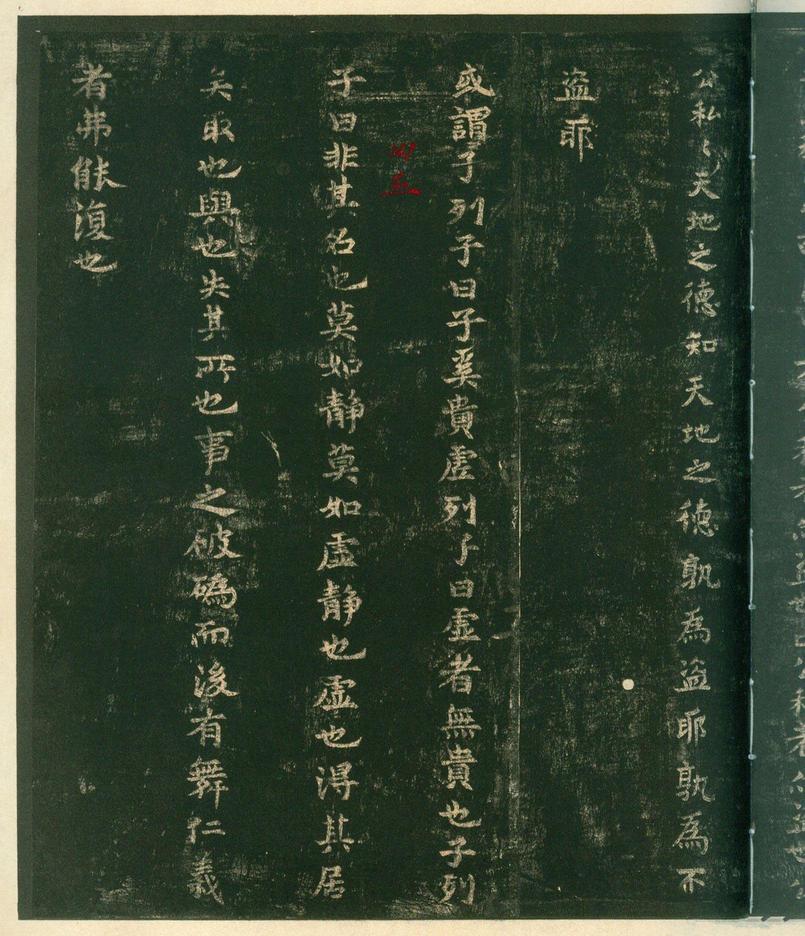 公私〻天地之德知天地之德孰為盜耶孰為不
盜耶
或謂子列子曰子奚貴虛列子曰虛者無貴也子列
子曰非其名也莫如靜莫如虛靜也虛也淂其居
矣取也與也失其所也事之破䃣而後有舞仁義
者弗能復也